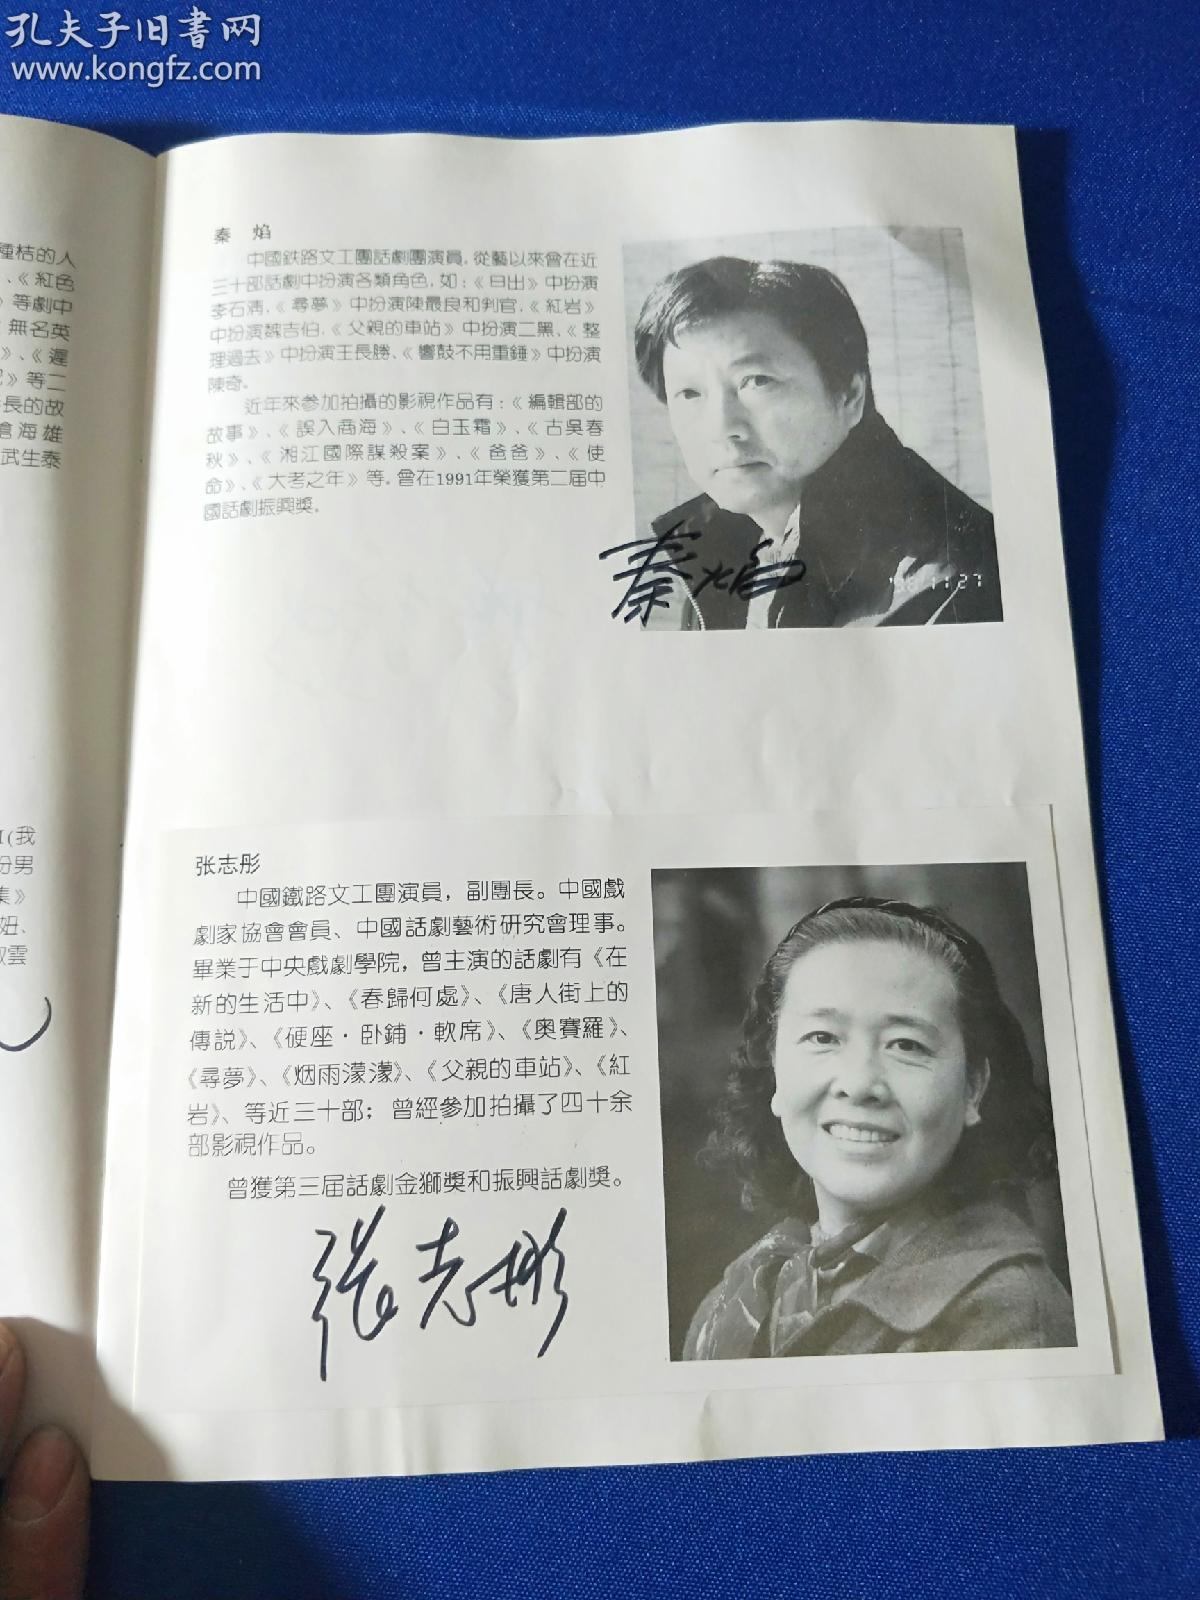 孔夫子旧書网
www.kongfz.com
種桔的人
、《紅色
》等劇中
無名英
》、《遲
》等二
長的故
滄海雄
武生泰
(我
份男
集》
妞、
雲
秦 焰
中國鉄路文工團話劇團演員,從藝以來曾在近
三十部話劇中扮演各類角色,如:《日出》中扮演
李石清,《尋夢》中扮演陳最良和判官,《紅岩》
中扮演魏吉伯,《父親的車站》中扮演二黑、《整
理過去》中扮演王長勝、《響鼓不用重錘》中扮演
陳奇。
近年來參加拍攝的影視作品有:《編輯部的
故事》、《誤入商海》、《白玉霜》、《古吳春
秋》、《湘江國際謀殺案》、《爸爸》、《使
命》、《大考之年》等。曾在1991年榮獲第二届中
國話劇振興獎。
秦焰
'98/11:27
张志彤
中國鐵路文工團演員，副團長。中國戲
劇家協會會員、中國話劇藝術研究會理事。
畢業于中央戲劇學院，曾主演的話劇有《在
新的生活中》、《春歸何處》、《唐人街上的
傳説》、《硬座·卧鋪·軟席》、《奥賽羅》、
《尋夢》、《烟雨濛濛》、《父親的車站》、《紅
岩》、等近三十部；曾經參加拍攝了四十余
部影視作品。
曾獲第三届話劇金獅獎和振興話劇獎。
張志彤